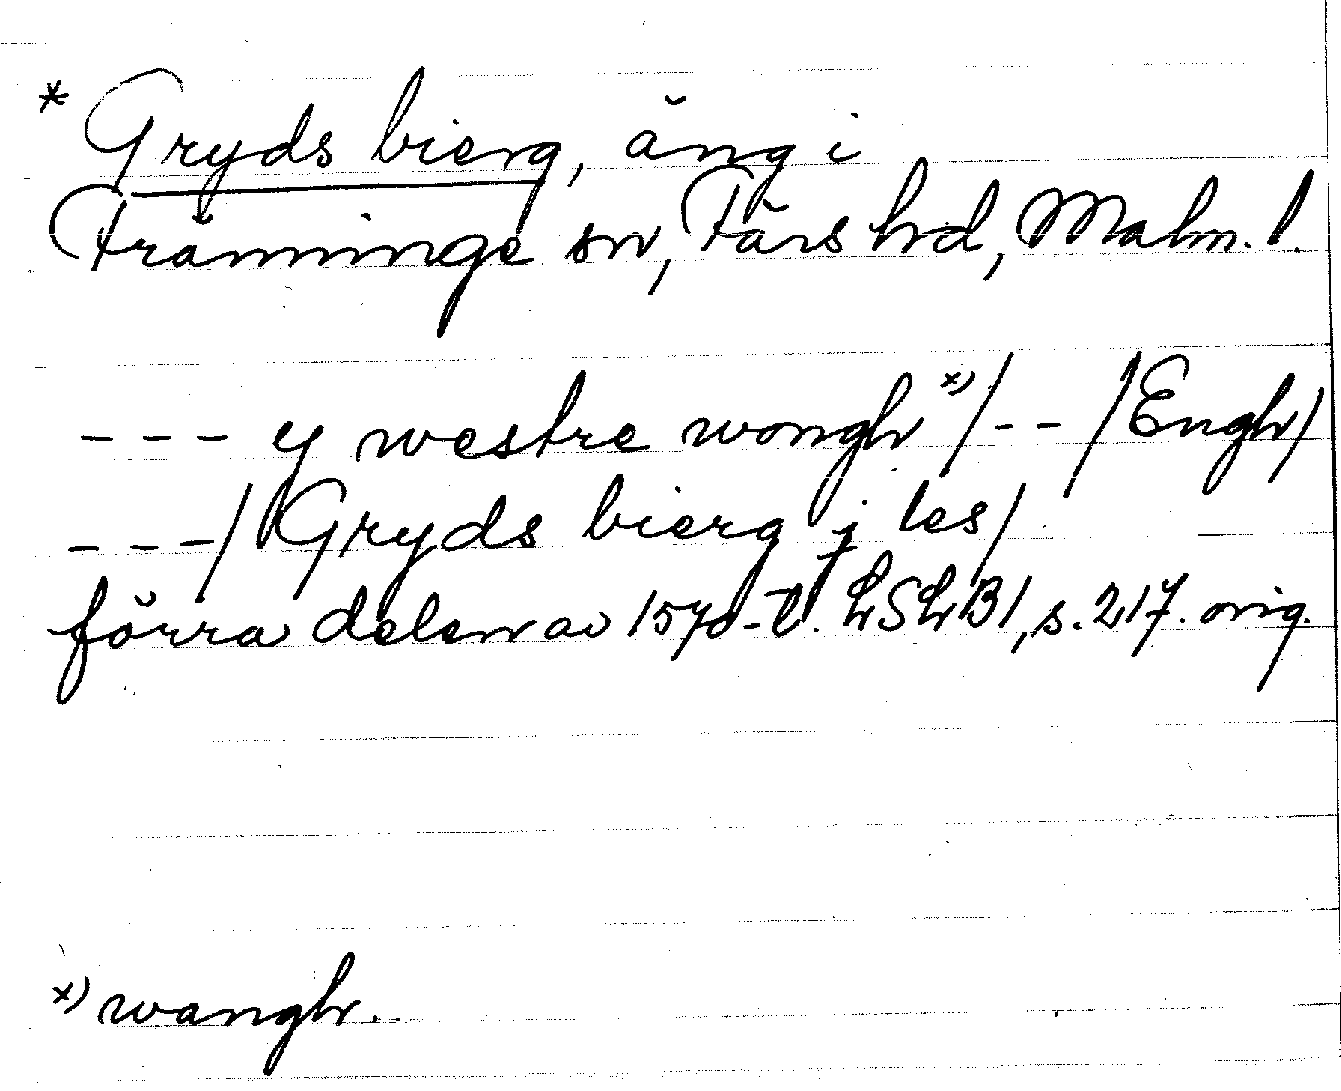 * Gryds bierg, äng i
Tranninge sn, Färs hd, Malm. l.
- - - y westre wongh x) /- - /Engh/
- - -/ Gryds bierg j les/
förra delen av 1570-t. LSLB1, s. 217. orig.
x) wangh.